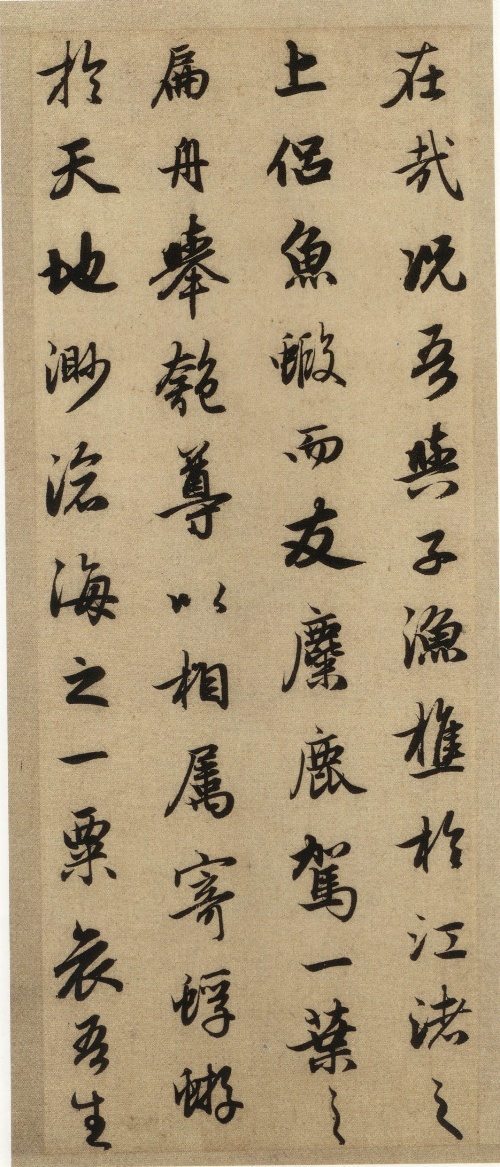 在哉况吾與子漁樵於江渚之
上侣魚蝦而友麋鹿駕一葉之
扁舟舉匏尊以相属寄蜉蝣
於天地渺滄海之一粟哀吾生